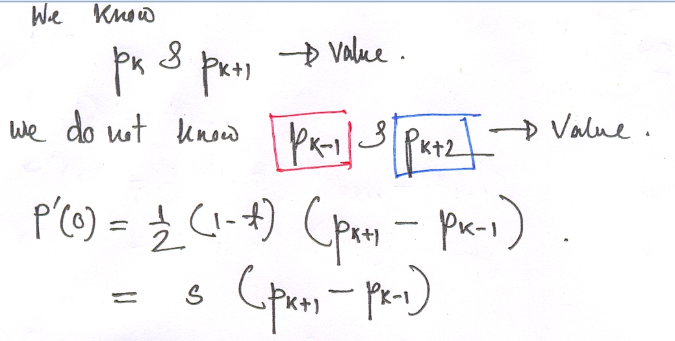 We know
pₖ & pₖ₊₁ → Value.
We do not know pₖ₋₁ & pₖ₊₂ → Value.
P'(0) = ½ (1-t) (pₖ₊₁ - pₖ₋₁).
= s (pₖ₊₁ - pₖ₋₁)